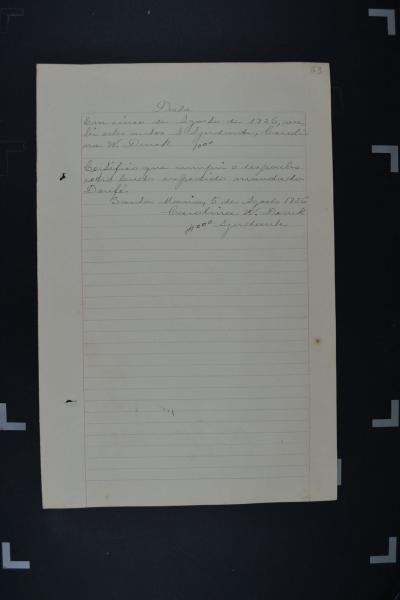 53
Data
Em cinco de Agosto de 1926, rece
bi estes autos A Ajudante, Caroli
na W. Dauk $900
Certifico que cumpri o despacho
tendo expedido mandado
Dou fé
Santa Maria, 5 de Agosto 1926
Carolina W. Dauk
Ajudante